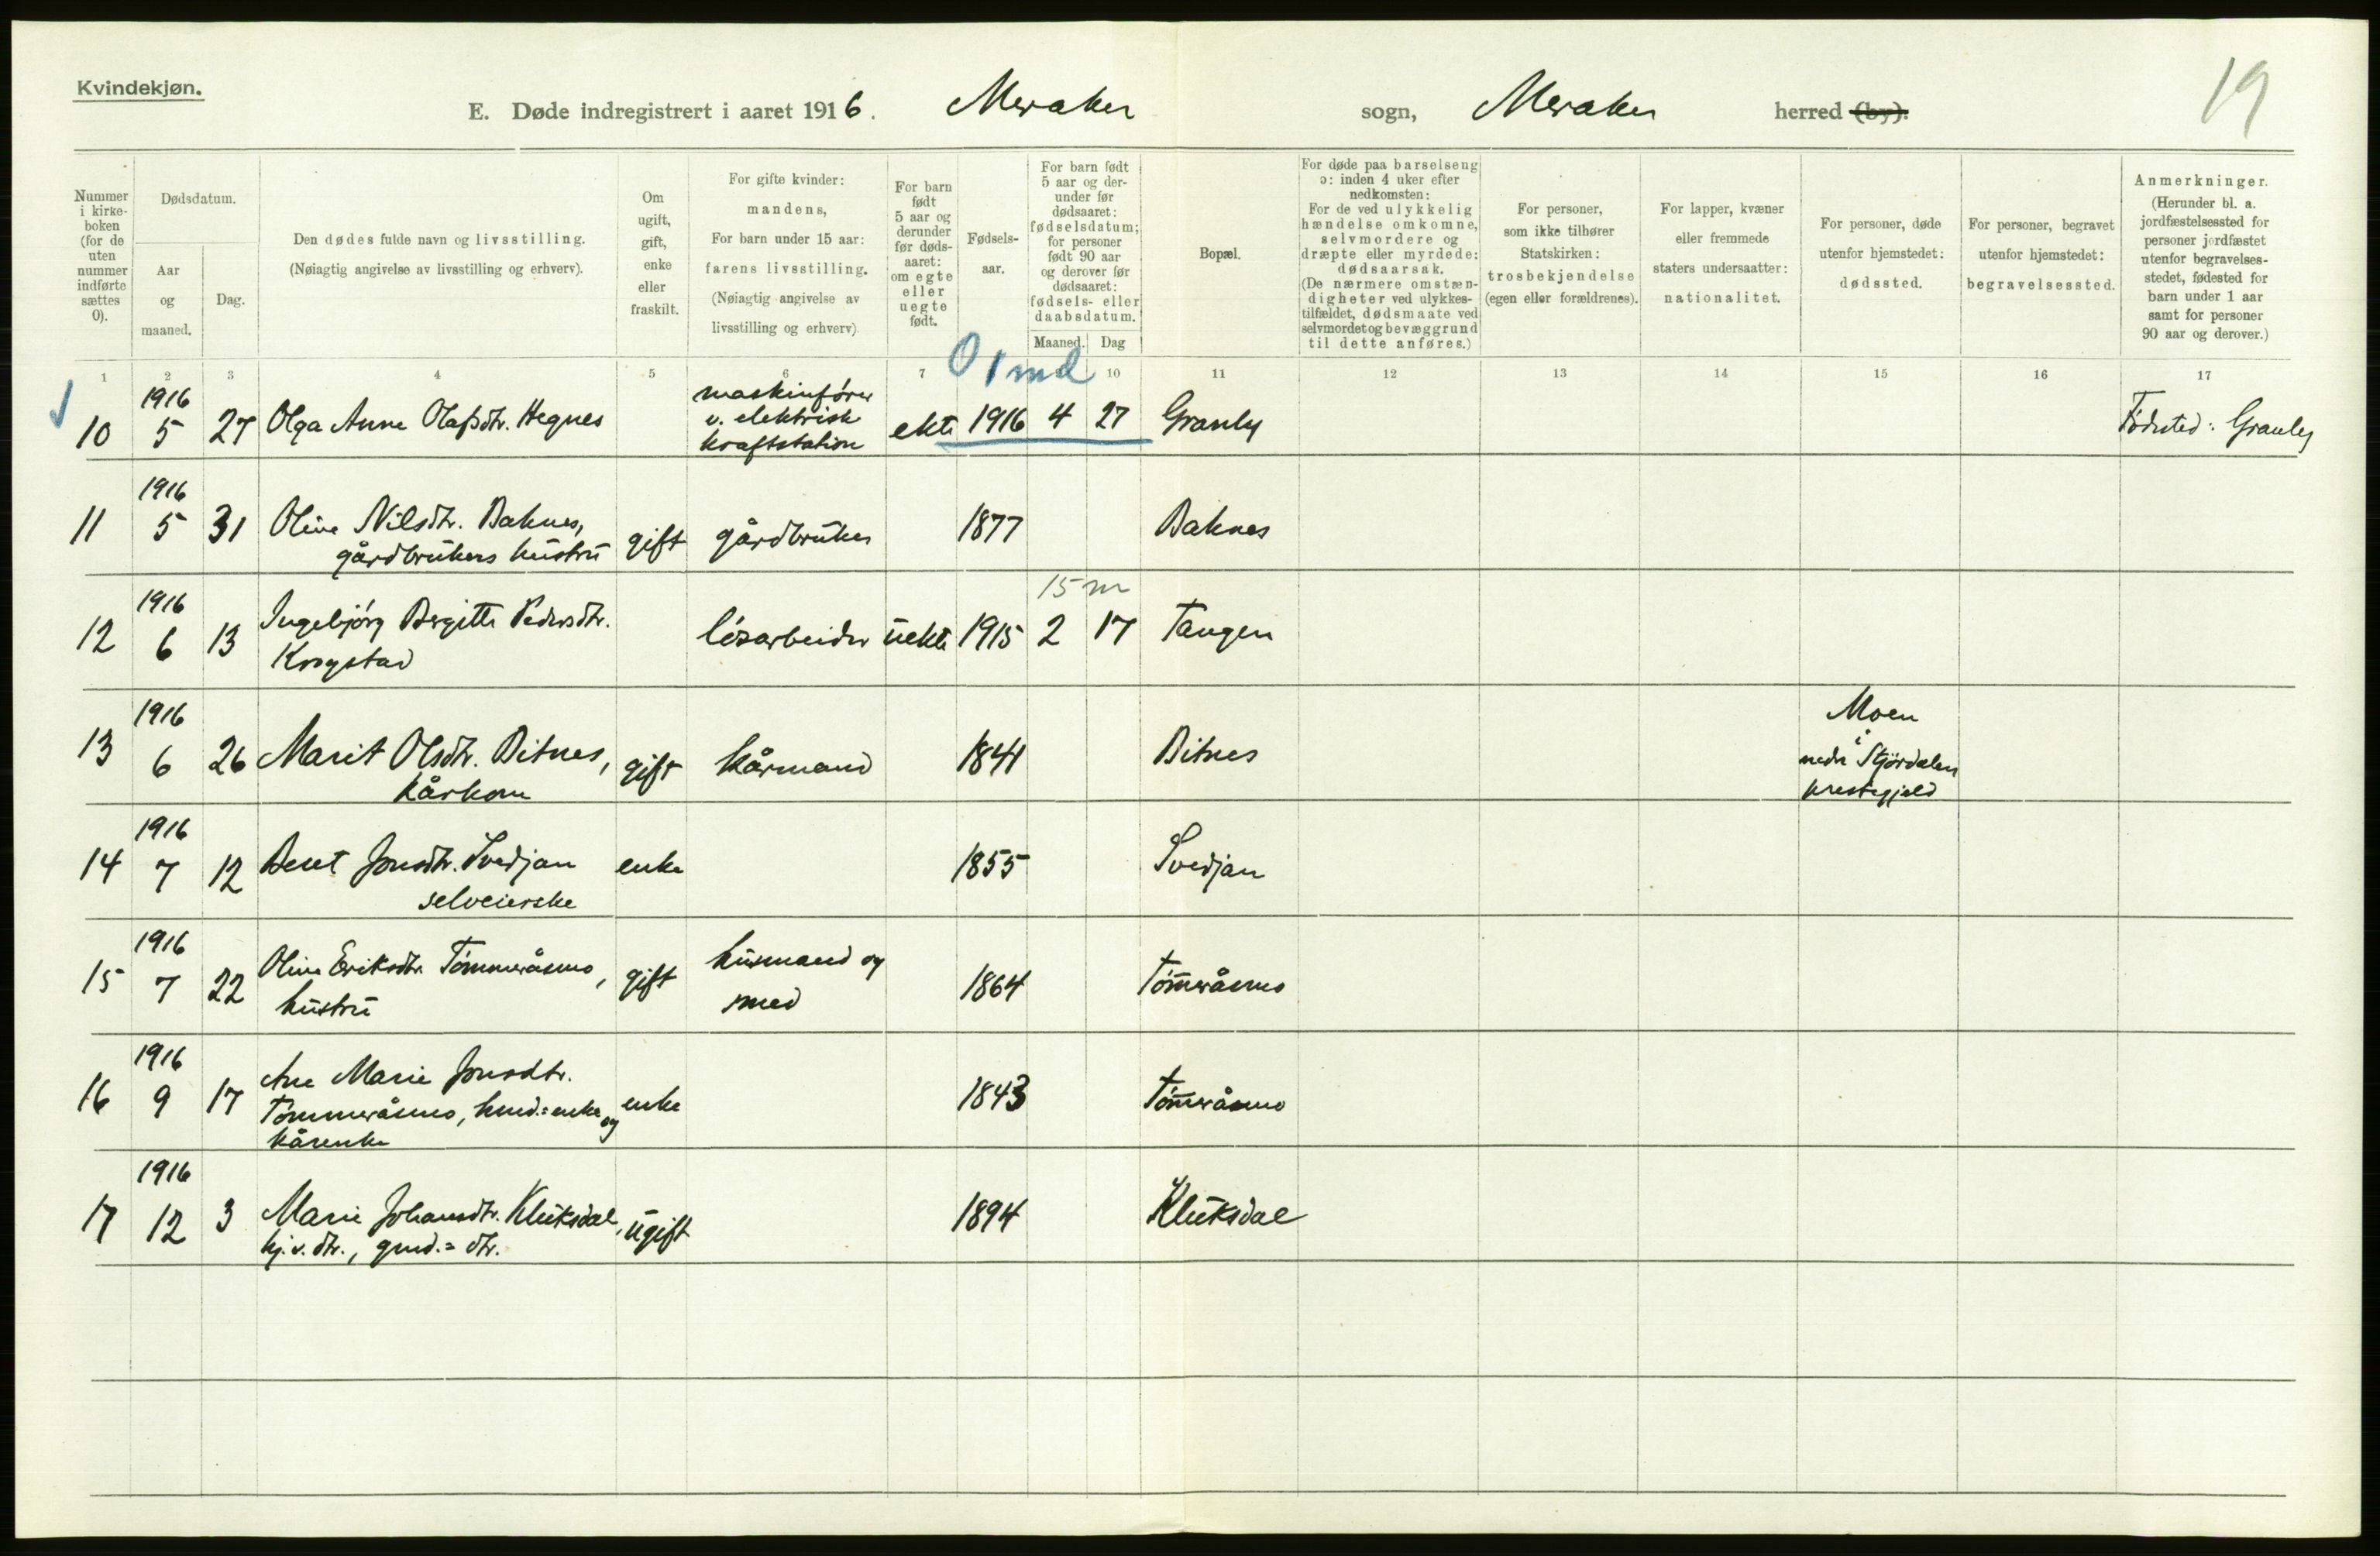 Kvindekjøn.
E. Døde indregistrert i aaret 1916. Meraker sogn, Meraker herred (by).
19
Nummer i kirkeboken (for de uten nummer indførte sættes 0).
Dødsdatum.
Aar og maaned.
Dag.
Den dødes fulde navn og livsstilling.
(Nøiagtig angivelse av livsstilling og erhverv).
Om ugift, gift, enke eller fraskilt.
For gifte kvinder: mandens,
For barn under 15 aar: farens livsstilling.
(Nøiagtig angivelse av livsstilling og erhverv)
For barn født 5 aar og derunder før dødsaaret: om egte eller uegte født.
Fødselsaar.
For barn født 5 aar og derunder før dødsaaret: fødselsdatum; for personer født 90 aar og derover før dødsaaret: fødsels- eller daabsdatum.
Maaned. Dag
Bopæl.
For døde paa barselseng ɔ: inden 4 uker efter nedkomsten:
For de ved ulykkelig hændelse omkomne, selvmordere og dræpte eller myrdede: dødsaarsak.
(De nærmere omstændigheter ved ulykkestilfældet, dødsmaate ved selvmordet og bevæggrund til dette anføres.)
For personer, som ikke tilhører Statskirken: trosbekjendelse (egen eller forældrenes).
For lapper, kvæner eller fremmede staters undersaatter: nationalitet.
For personer, døde utenfor hjemstedet: dødssted.
For personer, begravet utenfor hjemstedet: begravelsessted.
Anmerkninger.
(Herunder bl. a. jordfæstelsessted for personer jordfæstet utenfor begravelsesstedet, fødested for barn under 1 aar samt for personer 90 aar og derover.)
1 2 3 4 5 6 7 10 11 12 13 14 15 16 17
0 1 md
10 1916 5 27 Olga Anne Olafsdtr. Hegnes maskinfører v. elektrisk kraftstation ekte 1916 4 27 Granby Födested: Granby
11 1916 5 31 Oline Nilsdtr. Baknes, gårdbrukers hustru gift gårdbruker 1877 Baknes
15 m
12 1916 6 13 Ingebjörg Bergitte Pedersdtr. Krogstad lösarbeider uekte 1915 2 17 Tangen
13 1916 6 26 Marit Olsdtr. Bitnes, kårkone gift kårmand 1841 Bitnes Moen i nedre Stjördalen prestegjeld
14 1916 7 12 Beret Jonsdtr. Svedjan selveierske enke 1855 Svedjan
15 1916 7 22 Oline Eriksdtr. Tömmeråsmo, hustru gift husmand og smed 1864 Töm̅eråsmo
16 1916 9 17 Ane Marie Jonsdtr. Tömmeråsmo, hmd.=enke og kårenke enke 1843 Töm̅eråsmo
17 1916 12 3 Marie Johansdtr. Kluksdal, hj.v. dtr., gmd.= dtr. ugift 1894 Kluksdal